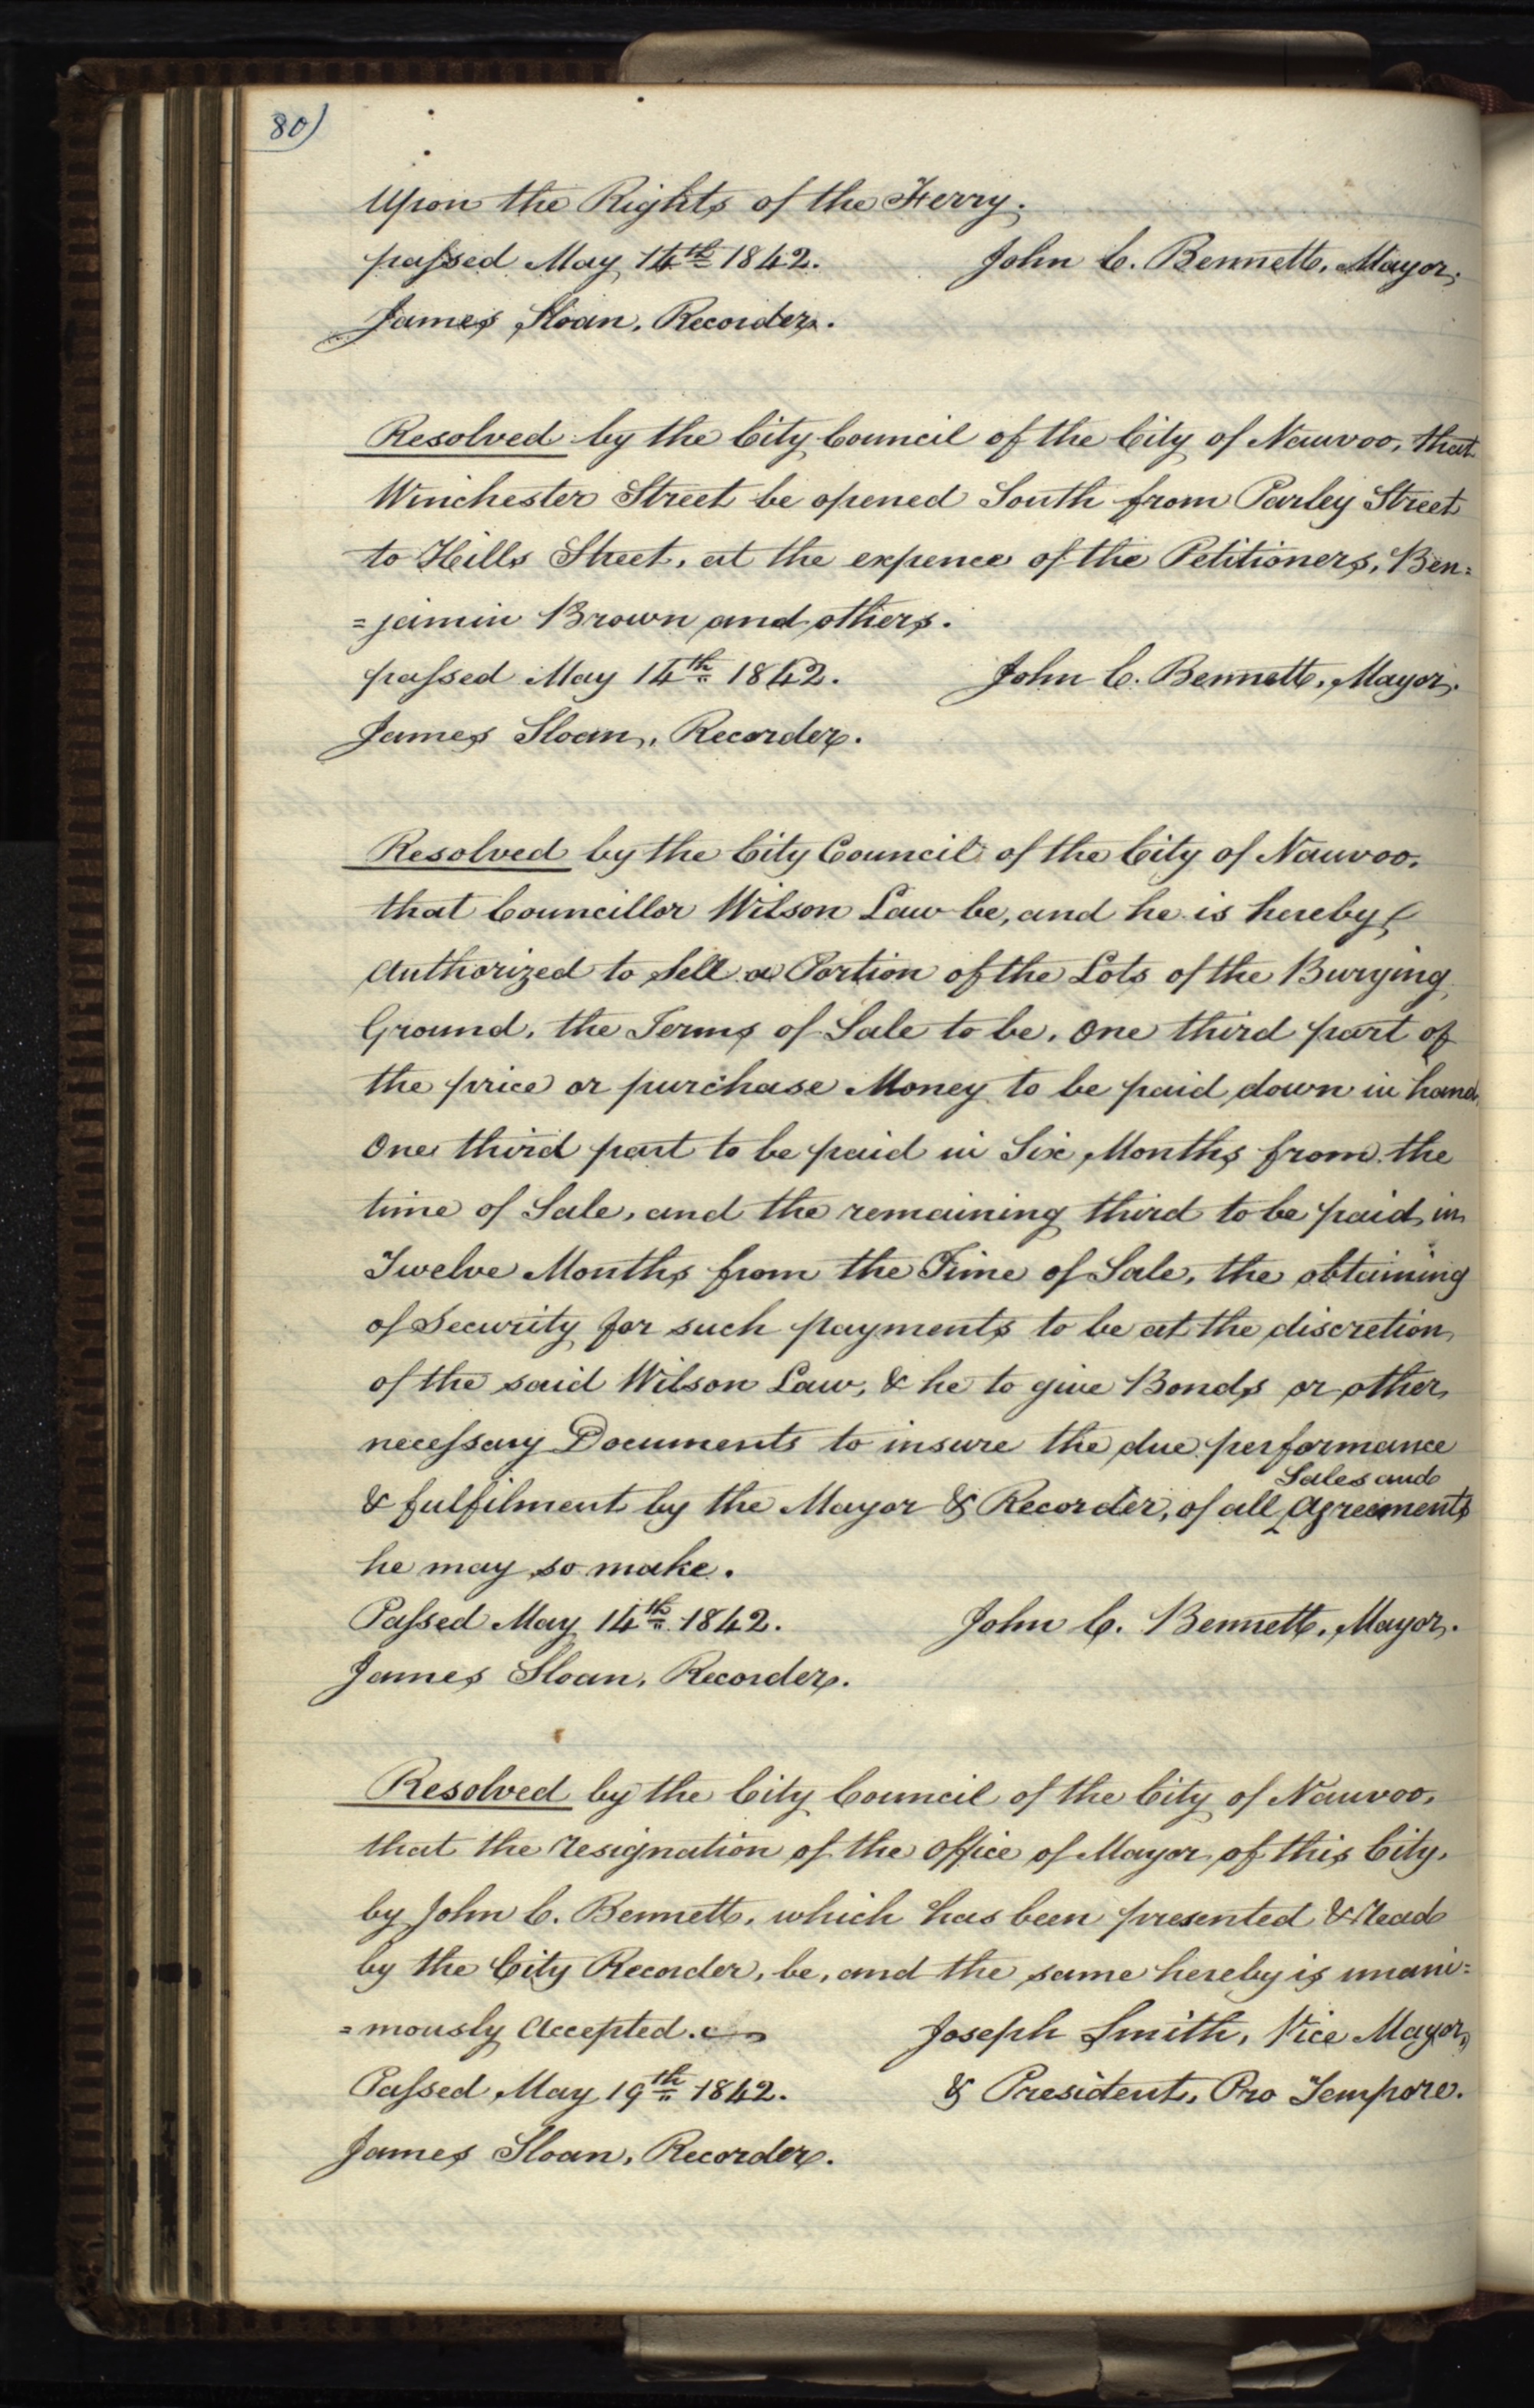 80)
Upon the Rights of the Ferry.
passed May 14th 1842. John C. Bennett, Mayor,
James Sloan, Recorder.
Resolved by the City Council of the City of Nauvoo, that
Winchester Street be opened South from Parley Street
to Hills Street, at the expence of the Petitioners, Ben=
=jamin Brown and others.
passed May 14th 1842. John C. Bennett, Mayor.
James Sloan, Recorder.
Resolved by the City Council of the City of Nauvoo,
that Councillor Wilson Law be, and he is hereby
Authorized to Sell a Portion of the Lots of the Burying
Ground, the Terms of Sale to be, One third part of
the price or purchase Money to be paid down in hand,
One third part to be paid in Six Months from the
time of Sale, and the remaining third to be paid in
Twelve Months from the Time of Sale, the obtaining
of Security for such payments to be at the discretion
of the said Wilson Law, & he to give Bonds or other
necessary Documents to insure the due performance
& fulfilment by the Mayor & Recorder, of all Sales and Agreements
he may so make.
Passed May 14th 1842. John C. Bennett, Mayor.
James Sloan, Recorder.
Resolved by the City Council of the City of Nauvoo,
that the resignation of the Office of Mayor of this City,
by John C. Bennett, which has been presented & Read
by the City Recorder, be, and the same hereby is unani=
=mously Accepted. Joseph Smith, Vice Mayor,
Passed May 19th 1842. & President, Pro Tempore.
James Sloan, Recorder.